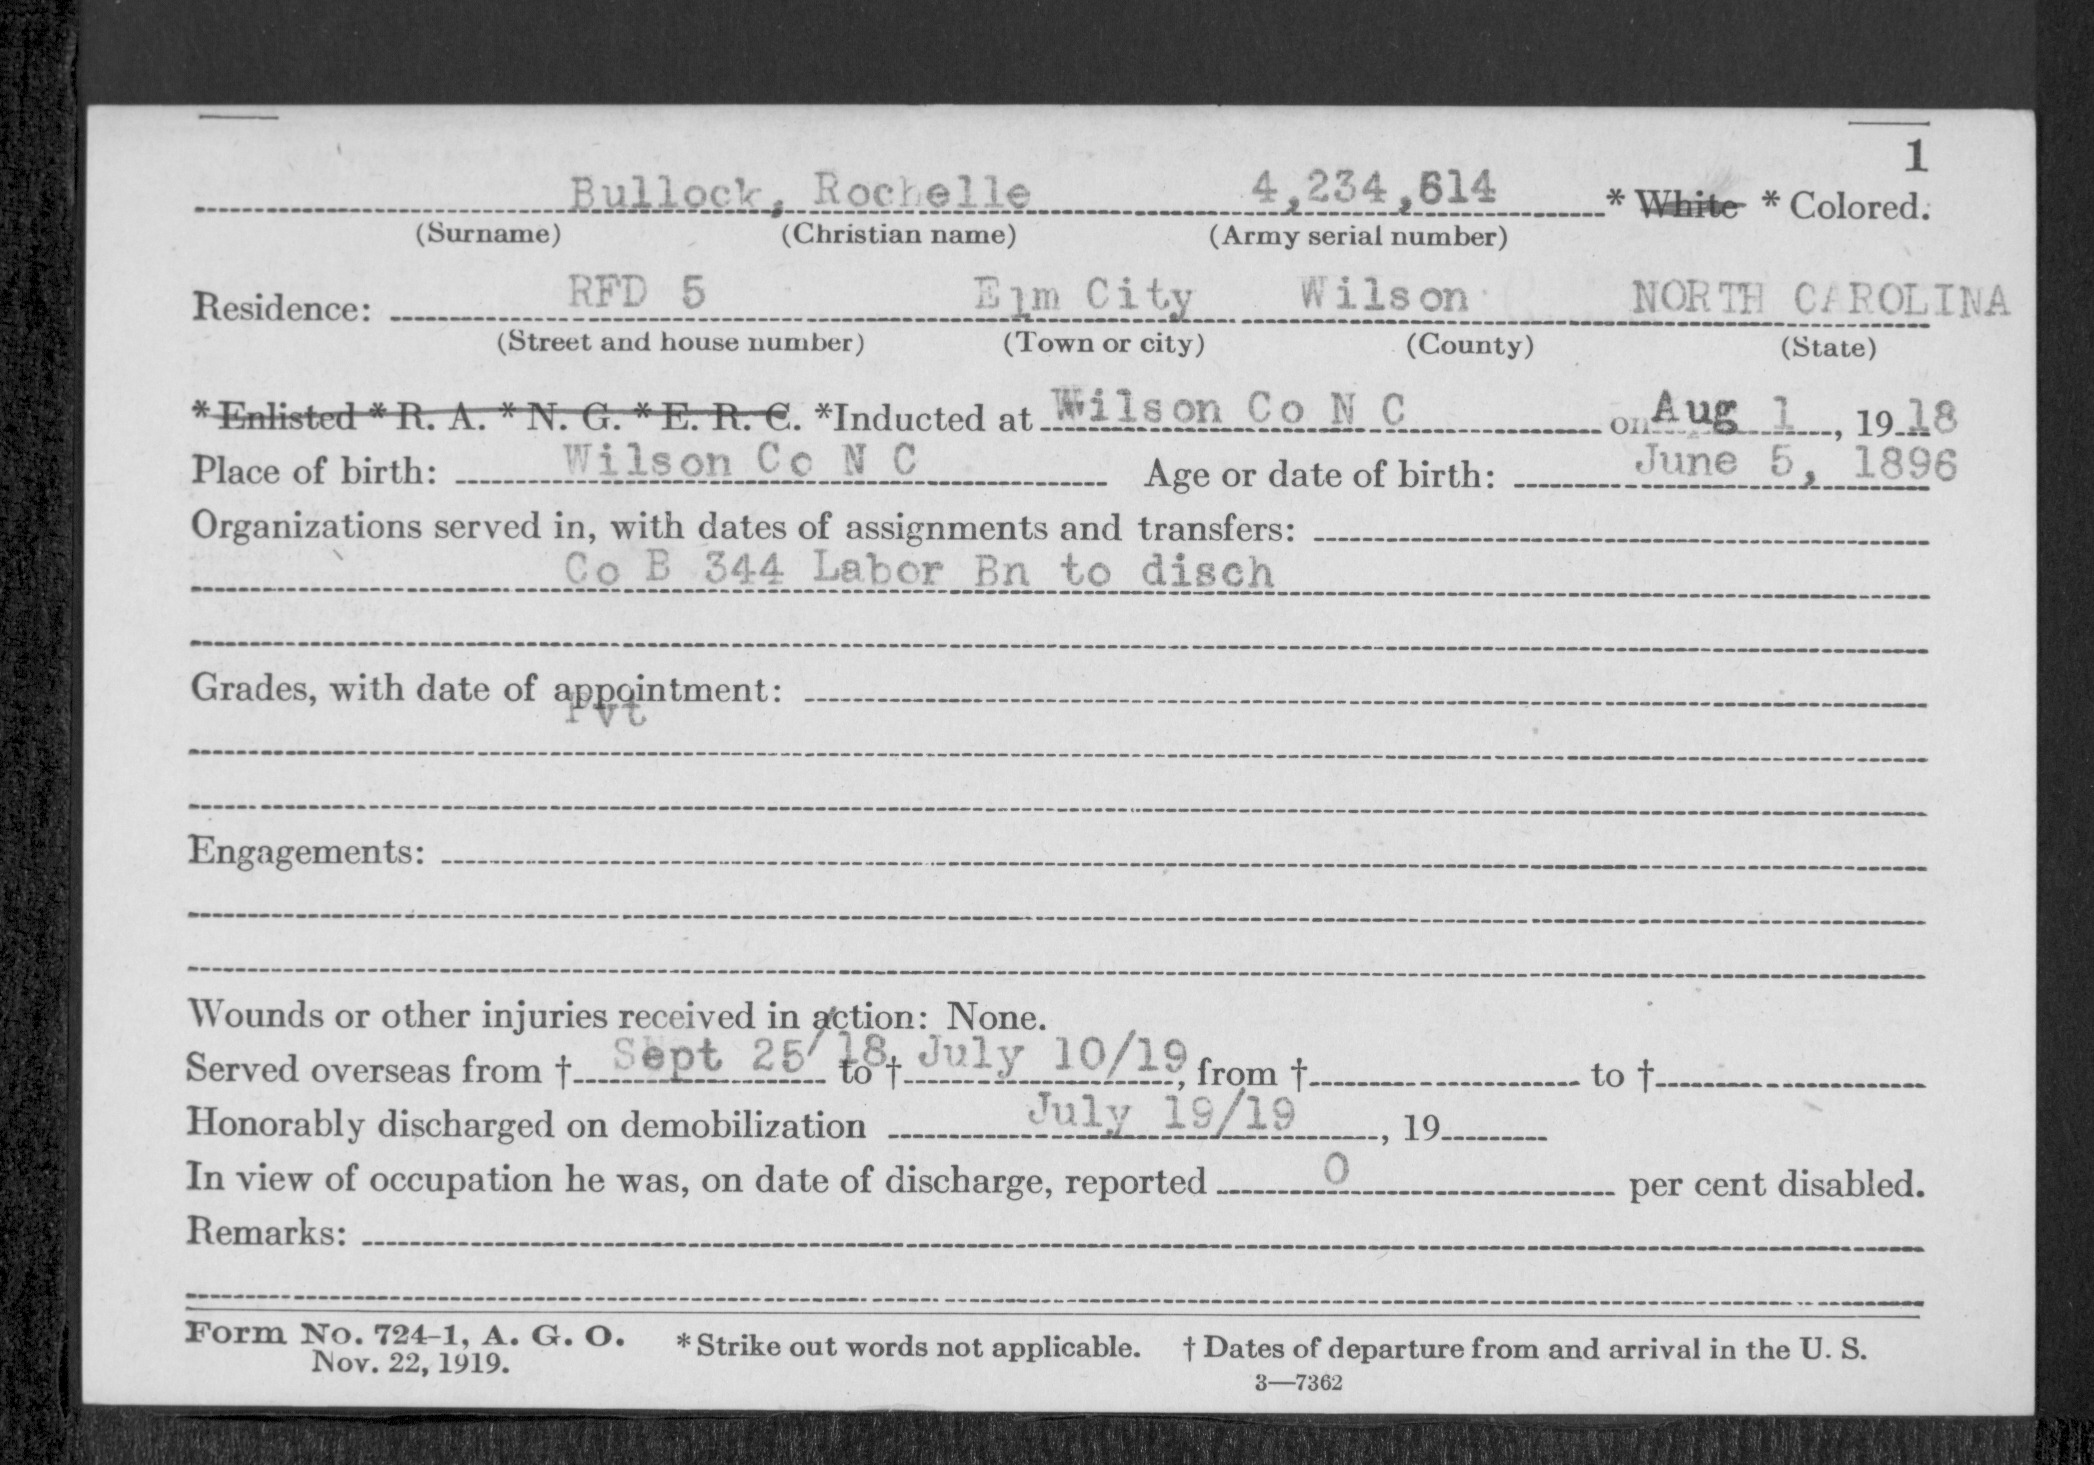 1
Bullock, Rochelle 4,234,614 * White * Colored.
(Surname) (Christian name) (Army serial number)
RFD 5 Elm City Wilson NORTH CAROLINA
Residence:
(Street and house number) (Town or city) (County) (State)
* Enlisted * R. A. * N. G. * E. R. C. *Inducted at Wilson Co N C on Aug 1, 1918
Place of birth: Wilson Co N C Age or date of birth: June 5, 1896
Organizations served in, with dates of assignments and transfers:
Co B 344 Labor Bn to disch
Grades, with date of appointment:
Pvt
Engagements:
Wounds or other injuries received in action: None.
Served overseas from † Sept 25/18 to † July 10/19, from † to †
Honorably discharged on demobilization July 19/19, 19
In view of occupation he was, on date of discharge, reported 0 per cent disabled.
Remarks:
Form No. 724-1, A. G. O. * Strike out words not applicable. † Dates of departure from and arrival in the U. S.
Nov. 22, 1919.
3—7362